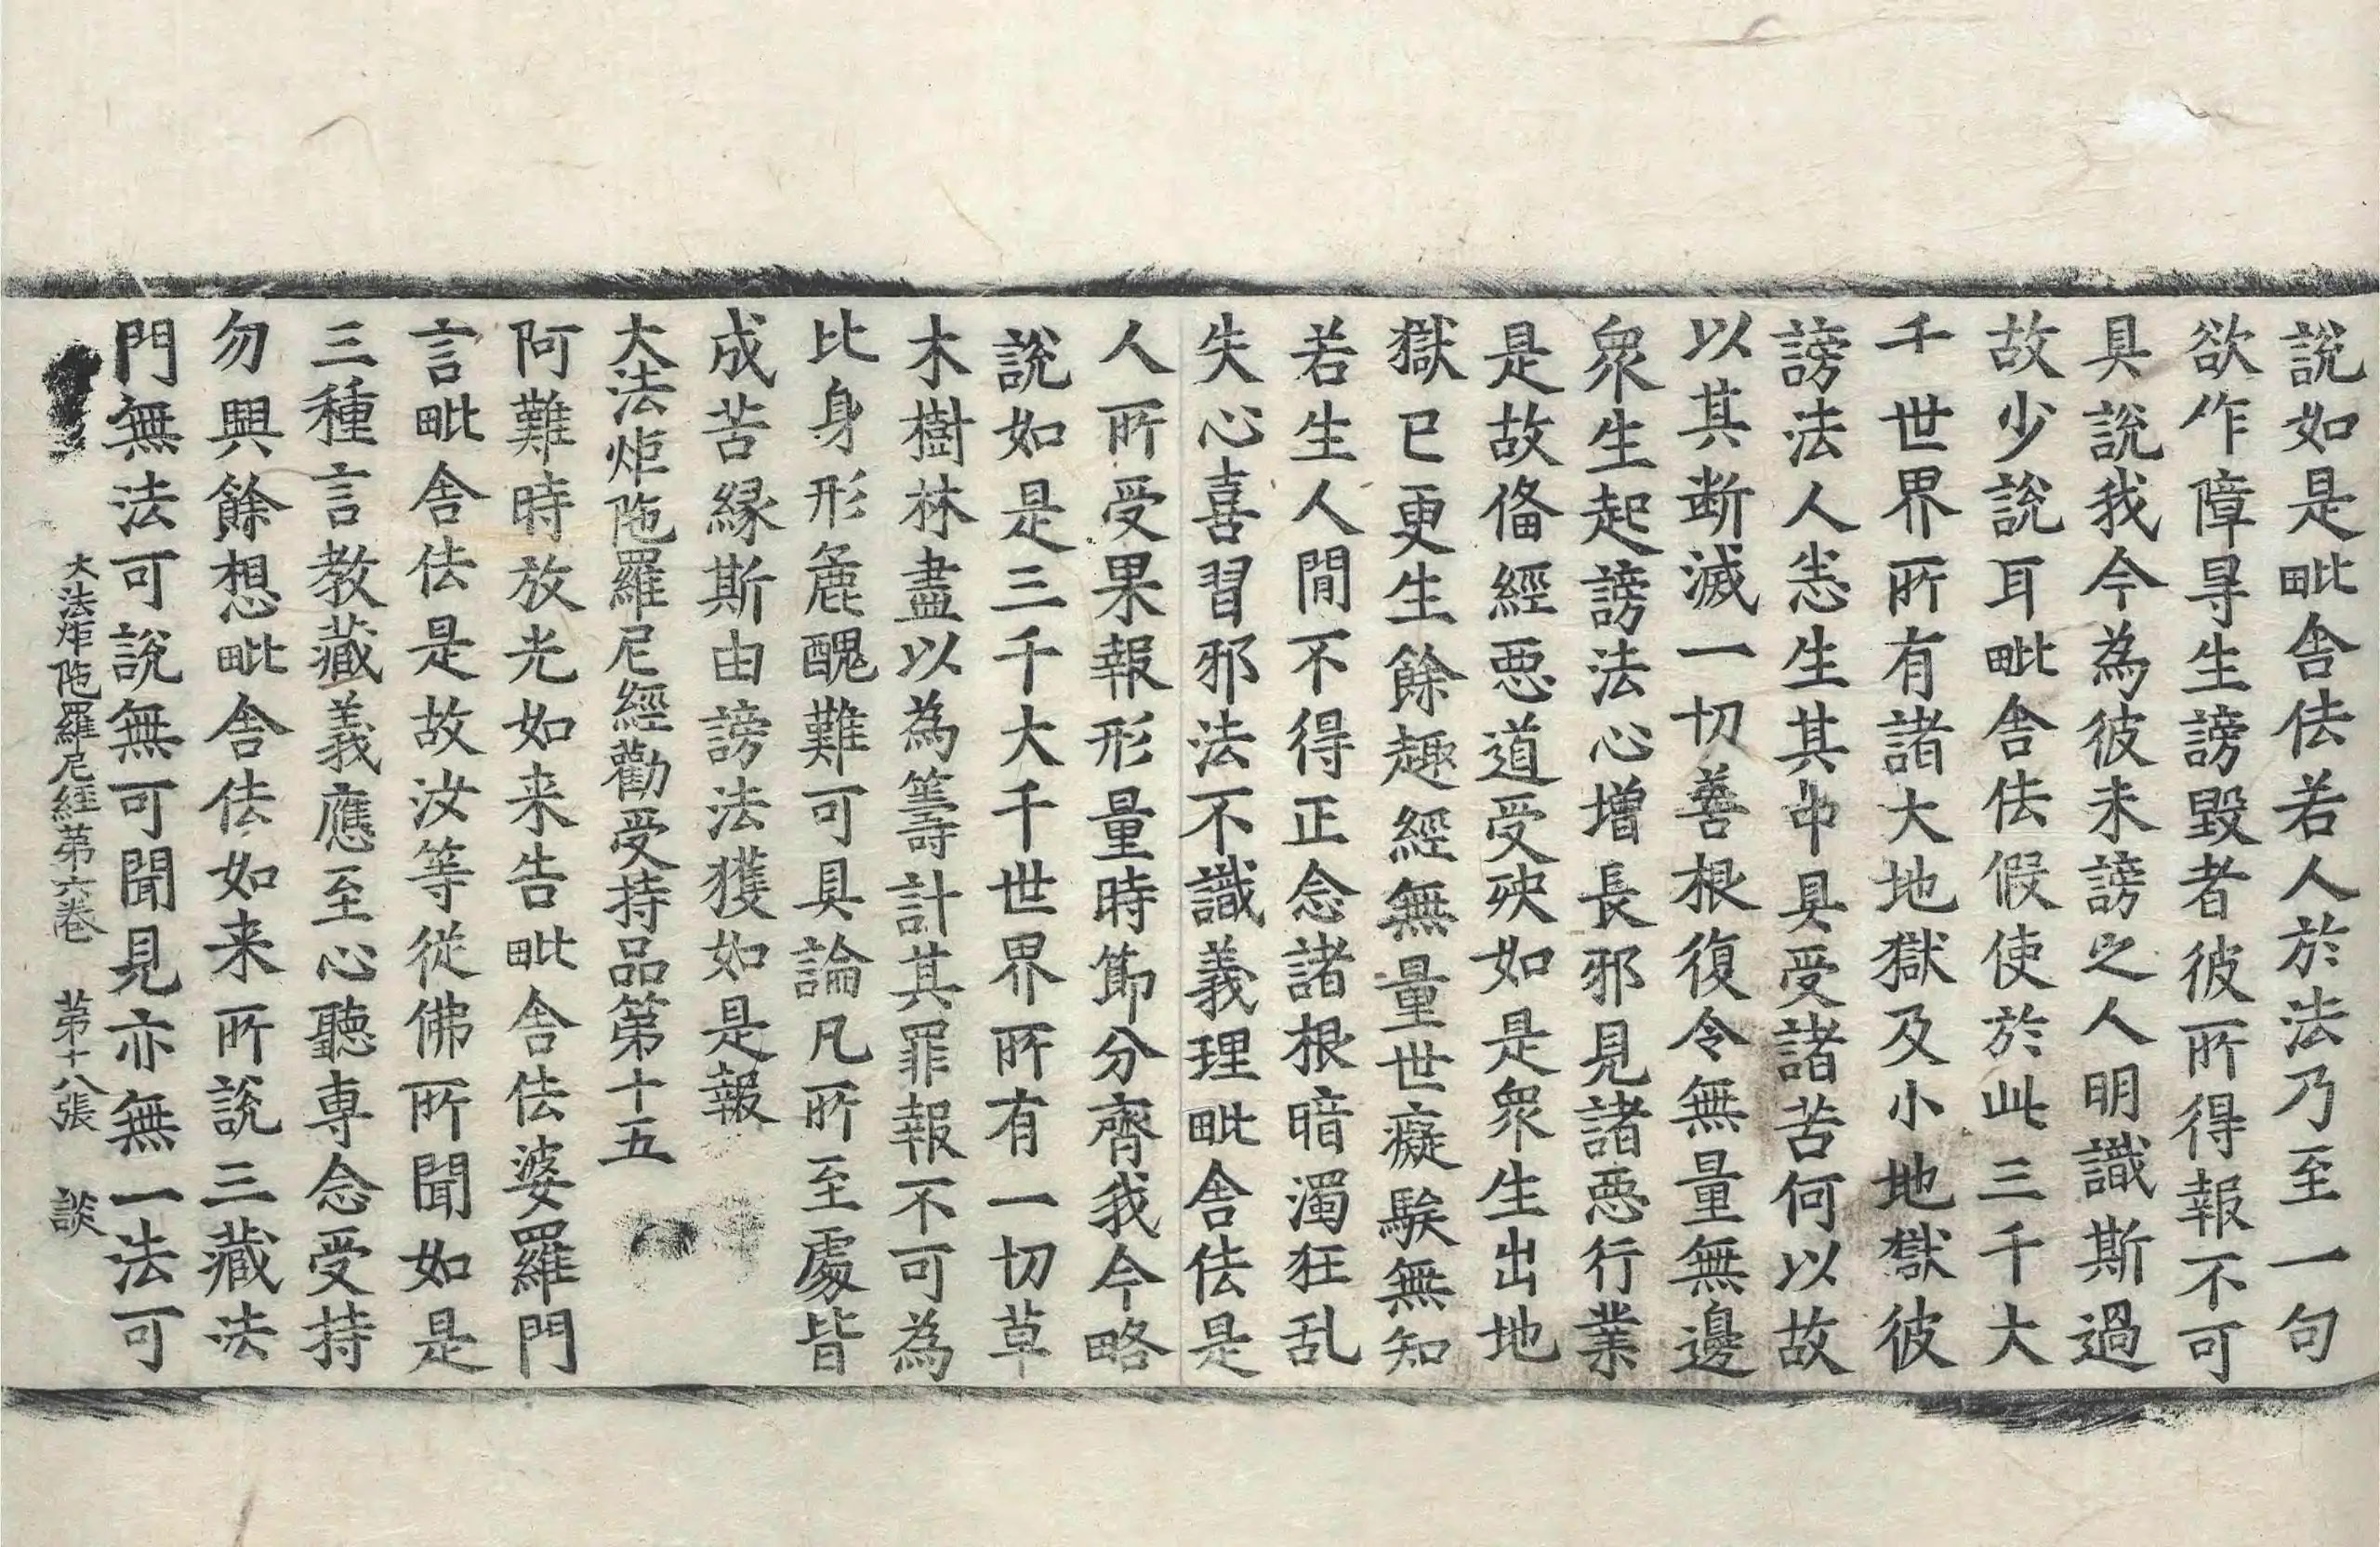 說如是毗舍佉若人於法乃至一句
欲作障㝵生謗毀者彼所得報不可
具說我今為彼未謗之人明識斯過
故少說耳毗舍佉假使於此三千大
千世界所有諸大地獄及小地獄彼
謗法人恙生其中具受諸苦何以故
以其断滅一切善根復令無量無邊
衆生起謗法心增長邪見諸惡行業
是故俻經惡道受殃如是衆生出地
獄已更生餘趣經無量世癡騃無知
若生人閒不得正念諸根暗濁狂乱
失心喜習邪法不識義理毗舍佉是
人所受果報形量時節分齊我今略
說如是三千大千世界所有一切草
木樹林盡以為籌計其罪報不可為
比身形麁醜難可具論凡所至處皆
成苦緣斯由謗法獲如是報
大法炬陁羅尼經勸受持品第十五
阿難時放光如来告毗舍佉婆羅門
言毗舍佉是故汝等從佛所聞如是
三種言教藏義應至心聽專念受持
勿興餘想毗舍佉如来所說三藏法
門無法可說無可聞見亦無一法可
大法炬陁羅尼經第六卷 第十八張 談